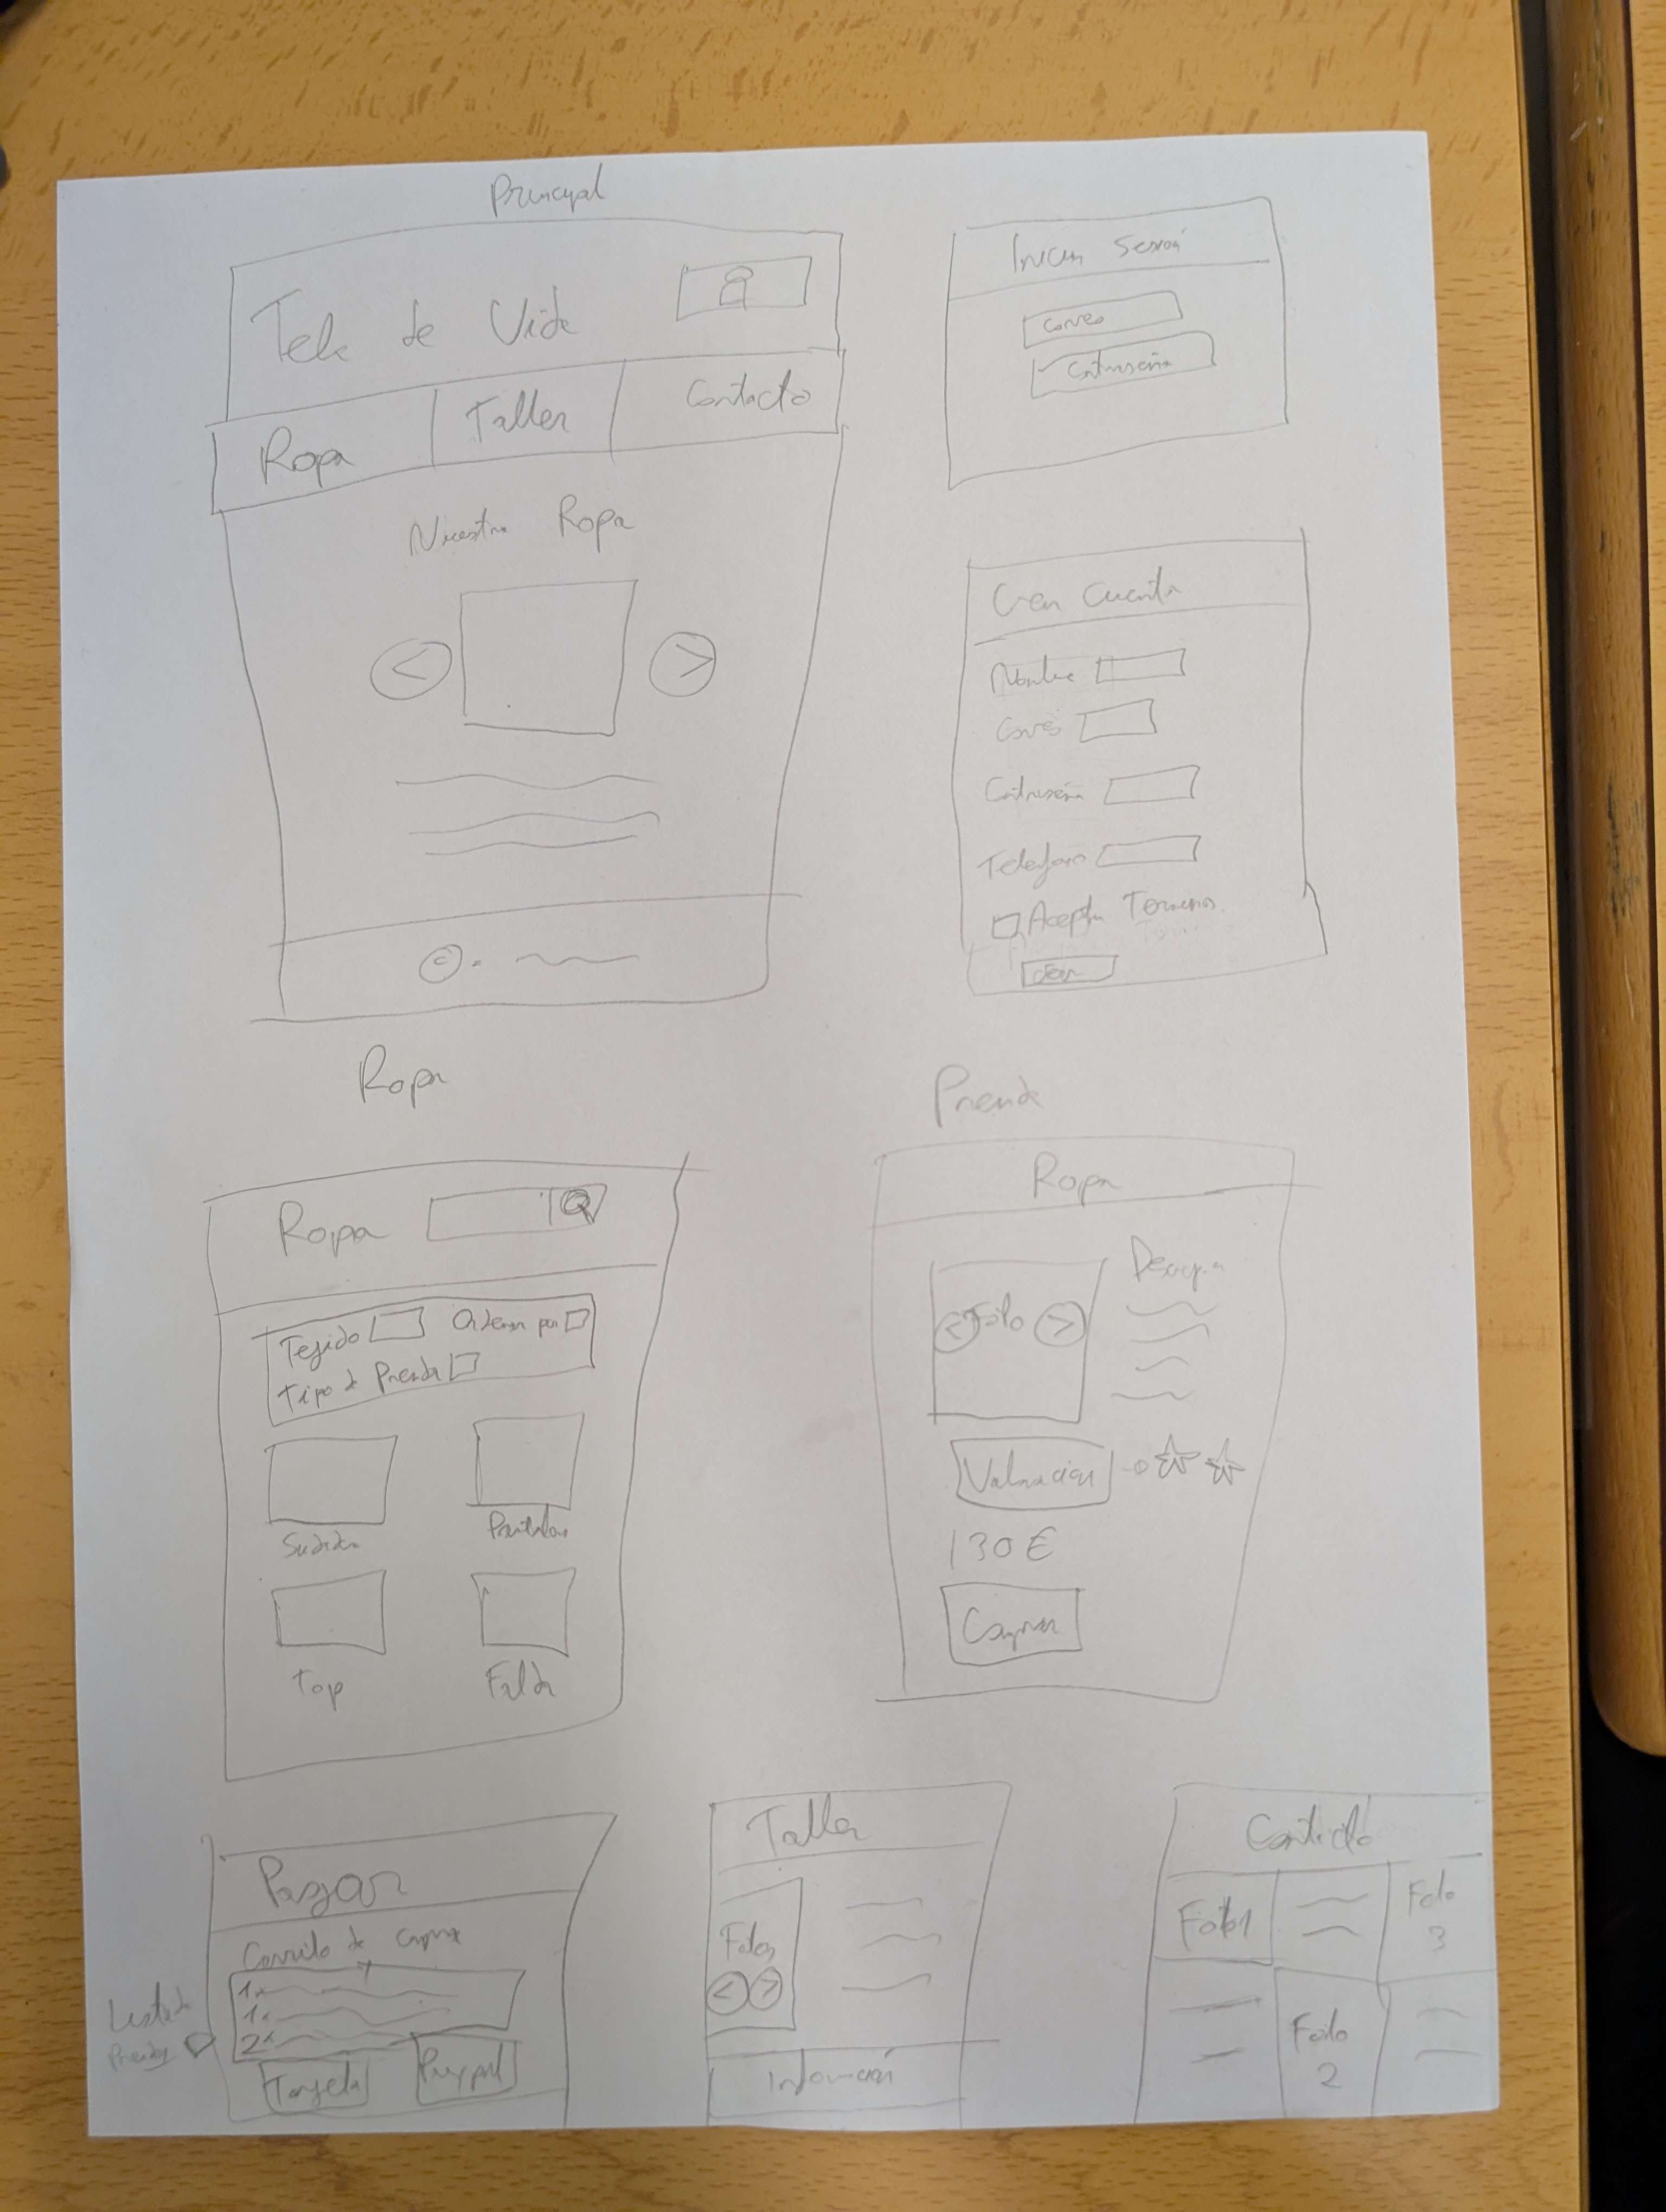 Principal
Tela de Vida
Ropa
Taller
Contacto
Nuestra Ropa
©.
Iniciar Sesión
Correo
Contraseña
Crear Cuenta
Nombre
Correo
Contraseña
Telefono
Aceptar Terminos
Crear
Ropa
Ropa
Tejido
Ordenar por
Tipo de Prenda
Sudadera
Pantalon
Top
Falda
Prenda
Ropa
Foto
<
>
Valoracion
130€
Comprar
Pagar
Carrito de compra
1x
1x
2x
Tarjeta
Paypal
Lista de
Prendas
Taller
Fotos
< >
Información
Contacto
Foto1
Foto
3
Foto
2